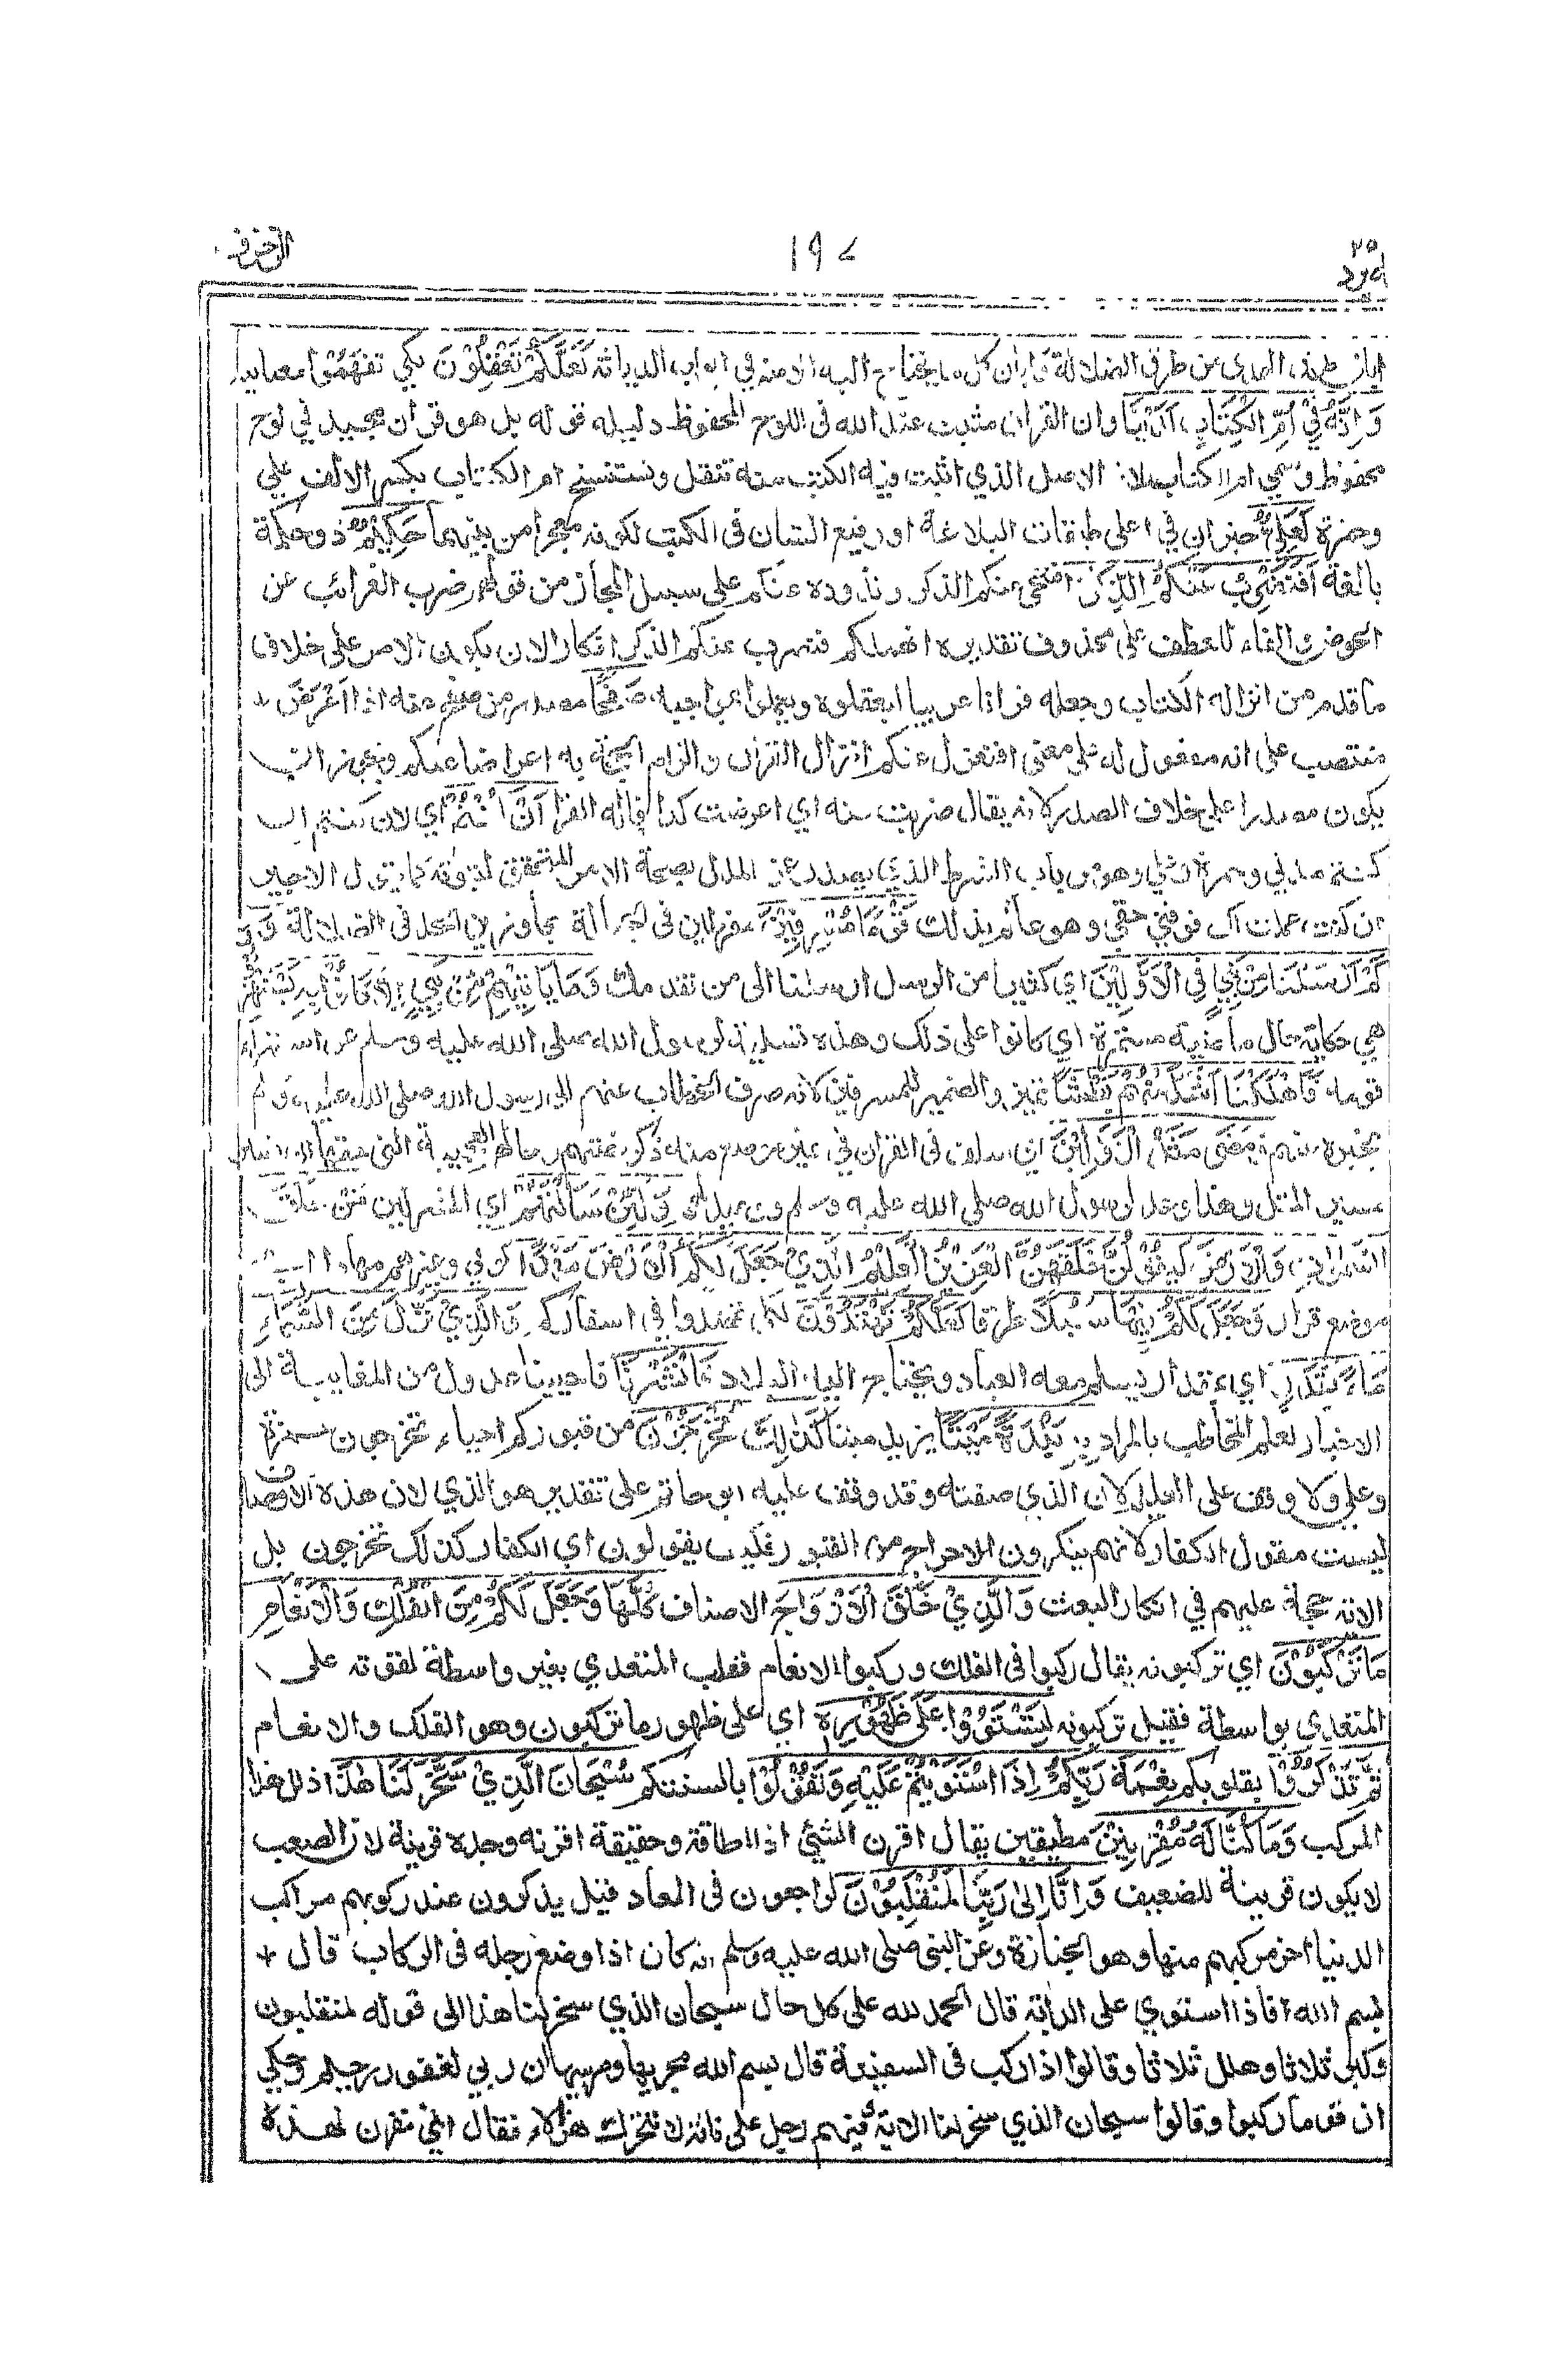 اليه يرد ٢٥
١٩٧
الزخرف
ابان طريق الهدى من طرق الضلالة وابان كل ما يحتاج اليه الامة في ابواب الديانة لَعَلَّكُمْ تَعْقِلُوْنَ لكي تفهموا معانيه
وَاِنَّهٗ فِيْ اُمِّ الْكِتَابِ لَدَيْنَا وان القران مثبت عند الله في اللوح المحفوظ دليله قوله بل هو قران مجيد في لوح
محفوظ وسمي ام الكتاب لانه الاصل الذي اثبت فيه الكتب منه تنقل وتستنسخ ام الكتاب بكسر الالف علي
وحمزة لَعَلِيٌّ خبر ان في اعلى طبقات البلاغة او رفيع الشان في الكتب لكونه معجرا من بينها حَكِيْمٌ ذو حكمة
بالغة اَفَنَضْرِبُ عَنْكُمُ الذِّكْرَ افننحي عنكم الذكر ونذوده عنكم على سبيل المجاز من قولهم ضرب الغرائب عن
الحوض والفاء للعطف على محذوف تقديره انهملكم فنضرب عنكم الذكر انكارا لان يكون الامر على خلاف
ما قدم من انزاله الكتاب وجعله قرانا عربيا ليعقلوه ويعملوا بمواجبه صَفْحًا مصدر من صفح عنه اذا اعرض
منتصب على انه مفعول له على معنى افنعزل عنكم انزال القران والزام الحجة به اعراضا عنكم ويجوز ان
يكون مصدرا على خلاف الصدر لانه يقال ضربت عنه اي اعرضت كذا قاله الفرا اَنْ كُنْتُمْ اي لان كنتم ان
كنتم مدني وحمزة وعلي وهو من باب الشرط الذي يصدر عن المدل بصحة الامر المتحقق لثبوته كما يقول الاجير
ان كنت عملت لك فوفني حقي وهو عالم بذلك قَوْمًا مُّسْرِفِيْنَ مفرطين في الجهالة مجاوزين الحد في الضلالة وَ
كَمْ اَرْسَلْنَا مِنْ نَّبِيٍّ فِي الْاَوَّلِيْنَ اي كثيرا من الرسل ارسلنا الى من تقدمك وَمَا يَاْتِيْهِمْ مِّنْ نَّبِيٍّ اِلَّا كَانُوْا بِهٖ يَسْتَهْزِءُوْنَ
هي حكاية حال ماضية مستمرة اي كانوا على ذلك وهذه تسلية لرسول الله صلى الله عليه وسلم عن استهزاء
قومه فَاَهْلَكْنَا اَشَدَّ مِنْهُمْ بَطْشًا تميز والضمير للمسرفين لانه صرف الخطاب عنهم الى رسول الله صلى الله عليه وسلم
يخبره عنهم وَمَضٰى مَثَلُ الْاَوَّلِيْنَ اي سلف في القران في غير موضع منه ذكر قصتهم وحالهم العجيبة التي حقها ان تسير
مسير المثل وهذا وعد لرسول الله صلى الله عليه وسلم ووعيد لهم وَلَئِنْ سَاَلْتَهُمْ اي المشركين مَنْ خَلَقَ
السَّمٰوَاتِ وَالْاَرْضَ لَيَقُوْلُنَّ خَلَقَهُنَّ الْعَزِيْزُ الْعَلِيْمُ الَّذِيْ جَعَلَ لَكُمُ الْاَرْضَ مَهْدًا كوفي وغيرهم مهادا اي
موضع قرار وَجَعَلَ لَكُمْ فِيْهَا سُبُلًا طرقا لَّعَلَّكُمْ تَهْتَدُوْنَ لكي تهتدوا في اسفاركم وَالَّذِيْ نَزَّلَ مِنَ السَّمَاءِ
مَاءً بِقَدَرٍ اي بمقدار يسلم معه العباد ويحتاج اليه البلاد فَاَنْشَرْنَا فاحيينا عدول من المغايبة الى
الاخبار لعلم المخاطب بالمراد بِهٖ بَلْدَةً مَّيْتًا يزيد ميتا كَذٰلِكَ تُخْرَجُوْنَ من قبوركم احياء تخرجون حمزة
وعلي ولا وقف على العليم لان الذي صفته وقد وقف عليه ابو حاتم على تقدير هو الذي لان هذه الاوصاف
ليست مقول الكفار لانهم ينكرون الاخراج من القبور فكيف يقولون اي الكفار كذلك تخرجون بل
الاية حجة عليهم في انكار البعث وَالَّذِيْ خَلَقَ الْاَزْوَاجَ الاصناف كُلَّهَا وَجَعَلَ لَكُمْ مِّنَ الْفُلْكِ وَالْاَنْعَامِ
مَا تَرْكَبُوْنَ اي تركبونه يقال ركبوا في الفلك وركبوا الانعام فغلب المتعدي بغير واسطة لقوته على
المتعدي بواسطة فقيل تركبونه لِتَسْتَوُوْا عَلٰى ظُهُوْرِهٖ اي على ظهور ما تركبون وهو الفلك والانعام
ثُمَّ تَذْكُرُوْا بقلوبكم نِعْمَةَ رَبِّكُمْ اِذَا اسْتَوَيْتُمْ عَلَيْهِ وَتَقُوْلُوْا بالسنتكم سُبْحَانَ الَّذِيْ سَخَّرَ لَنَا هٰذَا ذلل هذا
المركب وَمَا كُنَّا لَهٗ مُقْرِنِيْنَ مطيقين يقال اقرن الشئ اذا اطاقة وحقيقة اقرنه وجده قرينة لان الصعب
لا يكون قرينة للضعيف وَاِنَّا اِلٰى رَبِّنَا لَمُنْقَلِبُوْنَ لراجعون في المعاد قيل يذكرون عند ركوبهم مراكب
الدنيا اخر مركبهم منها وهو الجنازة وعن النبي صلى الله عليه وسلم انه كان اذا وضع رجله في الركاب قال
بسم الله فاذا استوي على الدابة قال الحمد لله على كل حال سبحان الذي سخر لنا هذا الى قوله لمنقلبون
وكبر ثلاثا وهلل ثلاثا وقالوا اذا ركب في السفينة قال بسم الله مجريها ومرسها ان ربي لغفور رحيم وحكي
ان قوما ركبوا وقالوا سبحان الذي سخر لنا الاية وفيهم رجل على ناقة لا تتحرك هزالا فقال اني مقرن لهذه